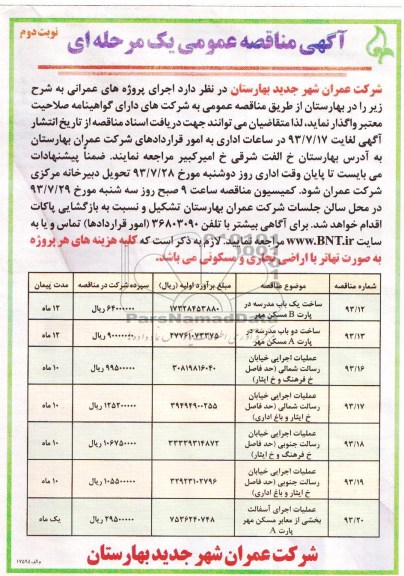 نوبت دوم
آگهی مناقصه عمومی یک مرحله ای
شرکت عمران شهر جدید بهارستان در نظر دارد اجرای پروژه های عمرانی به شرح
زیر را در بهارستان از طریق مناقصه عمومی به شرکت های دارای گواهینامه صلاحیت
معتبر واگذار نماید، لذا متقاضیان می توانند جهت دریافت اسناد مناقصه از تاریخ انتشار
آگهی لغایت ۹۳/۷/۱۷ در ساعات اداری به امور قراردادهای شرکت عمران بهارستان
به آدرس بهارستان خ الفت شرقی خ امیرکبیر مراجعه نمایند. ضمناً پیشنهادات
می بایست تا پایان وقت اداری روز دوشنبه مورخ ۹۳/۷/۲۸ تحویل دبیرخانه مرکزی
شرکت عمران شود. کمیسیون مناقصه ساعت ۹ صبح روز سه شنبه مورخ ۹۳/۷/۲۹
در محل سالن جلسات شرکت عمران بهارستان تشکیل و نسبت به بازگشایی پاکات
اقدام خواهد شد. برای آگاهی بیشتر با تلفن ۳۶۸۰۳۰۹۰ (امور قراردادها) تماس و یا به
سایت www.BNT.ir مراجعه نمایید. لازم به ذکر است که کلیه هزینه های هر پروژه
به صورت تهاتر با اراضی تجاری و مسکونی می باشد.
شماره مناقصه موضوع مناقصه مبلغ برآورد اولیه (ریال) سپرده شرکت در مناقصه مدت پیمان
۹۳/۱۲ ساخت یک باب مدرسه در پارت B مسکن مهر ۱۷۳۲۸۴۵۳۸۸۰ ۶۴۰۰۰۰۰۰۰ ریال ۱۲ ماه
۹۳/۱۳ ساخت دو باب مدرسه در پارت A مسکن مهر ۲۷۷۶۱۰۷۳۳۷۵ ۹۰۰۰۰۰۰۰۰ ریال ۱۲ ماه
۹۳/۱۶ عملیات اجرایی خیابان رسالت شمالی (حد فاصل خ فرهنگ و خ ایثار) ۳۰۸۱۹۸۱۶۰۴۰ ۹۹۵۰۰۰۰۰۰ ریال ۱۰ ماه
۹۳/۱۷ عملیات اجرایی خیابان رسالت شمالی (حد فاصل خ ایثار و باغ اداری) ۳۹۴۹۲۹۰۰۲۵۵ ۱۲۵۲۰۰۰۰۰۰ ریال ۱۰ ماه
۹۳/۱۸ عملیات اجرایی خیابان رسالت جنوبی (حد فاصل خ فرهنگ و خ ایثار) ۳۳۳۳۹۳۱۴۸۷۲ ۱۰۶۷۵۰۰۰۰۰ ریال ۱۰ ماه
۹۳/۱۹ عملیات اجرایی خیابان رسالت جنوبی (حد فاصل خ ایثار و باغ اداری) ۳۲۹۲۳۱۰۲۷۹۶ ۱۰۵۵۰۰۰۰۰۰ ریال ۱۰ ماه
۹۳/۲۰ عملیات اجرای آسفالت بخشی از معابر مسکن مهر پارت A ۷۵۳۶۲۴۰۷۴۸ ۲۹۵۰۰۰۰۰۰ ریال یک ماه
ParsNamadData
شرکت عمران شهر جدید بهارستان
م الف ۱۷۵۹۵